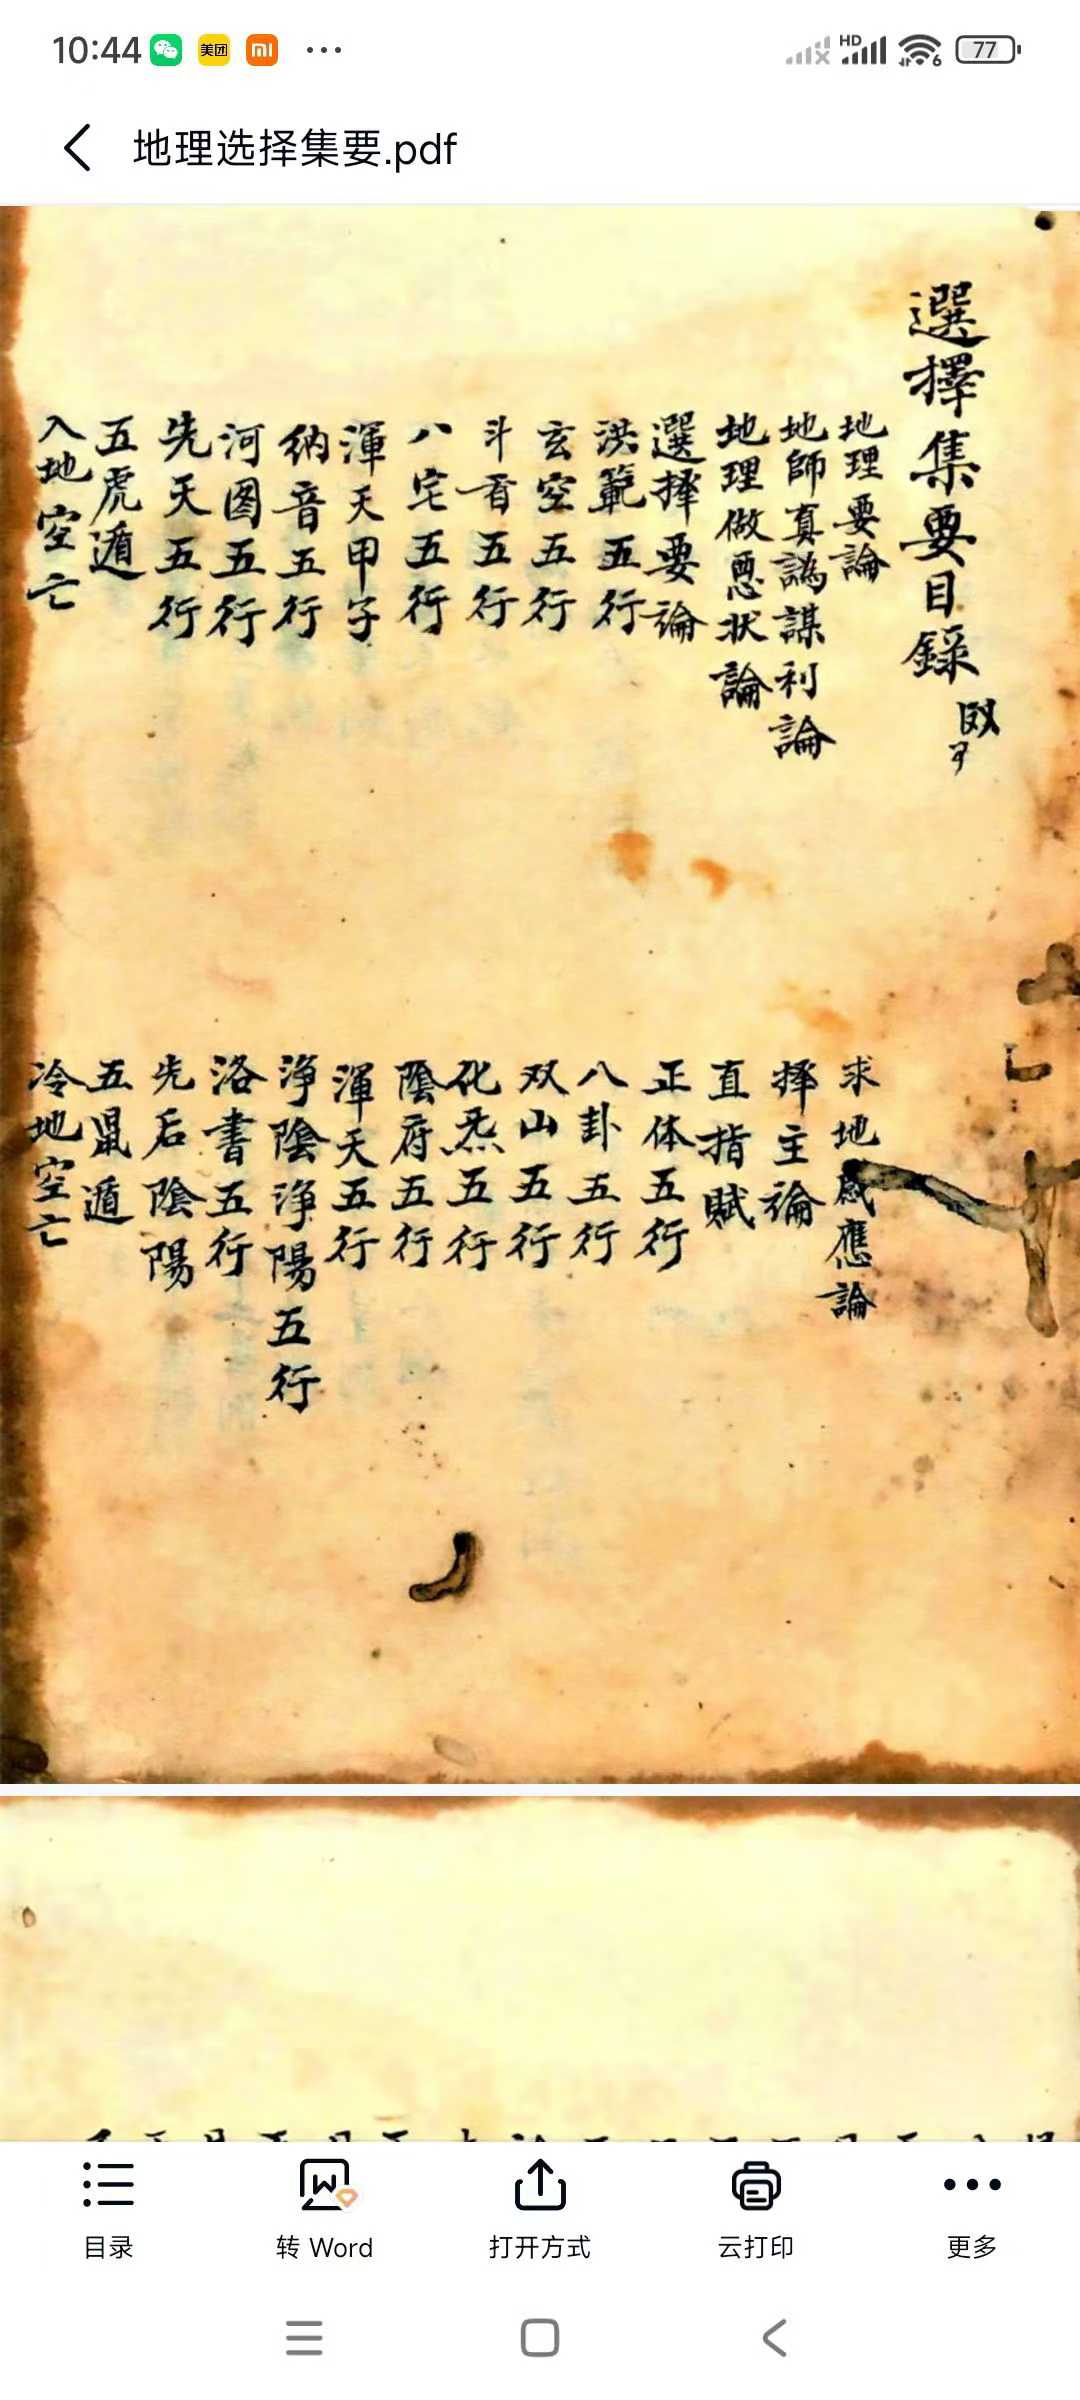 10:44 美团 HD 6 77
地理选择集要.pdf
選擇集要目錄
地理要論
求地感應論
地師真譌謀利論
擇主論
地理做悪状論
直指賦
選擇要論
正体五行
洪範五行
八卦五行
玄空五行
双山五行
斗首五行
化炁五行
八宅五行
陰府五行
渾天甲子
渾天五行
納音五行
淨陰淨陽五行
河图五行
洛書五行
先天五行
先后陰陽
五虎遁
五鼠遁
入地空亡
冷地空亡
目录
转 Word
打开方式
云打印
更多